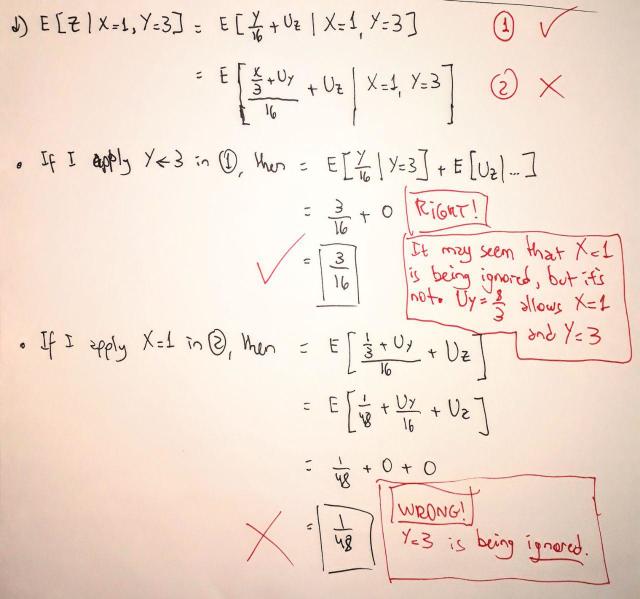 d) E[Z | X=1, Y=3] = E[Y/16 + Uz | X=1, Y=3] ① ✓
= E[(X/3 + Uy)/16 + Uz | X=1, Y=3] ② ✗
• If I apply Y←3 in ①, then = E[Y/16 | Y=3] + E[Uz|...]
= 3/16 + 0 RIGHT!
✓ = 3/16
It may seem that X=1
is being ignored, but it's
not. Uy = 8/3 allows X=1
and Y=3
• If I apply X=1 in ②, then = E[(1/3 + Uy)/16 + Uz]
= E[1/48 + Uy/16 + Uz]
= 1/48 + 0 + 0
✗ = 1/48
WRONG!
Y=3 is being ignored.